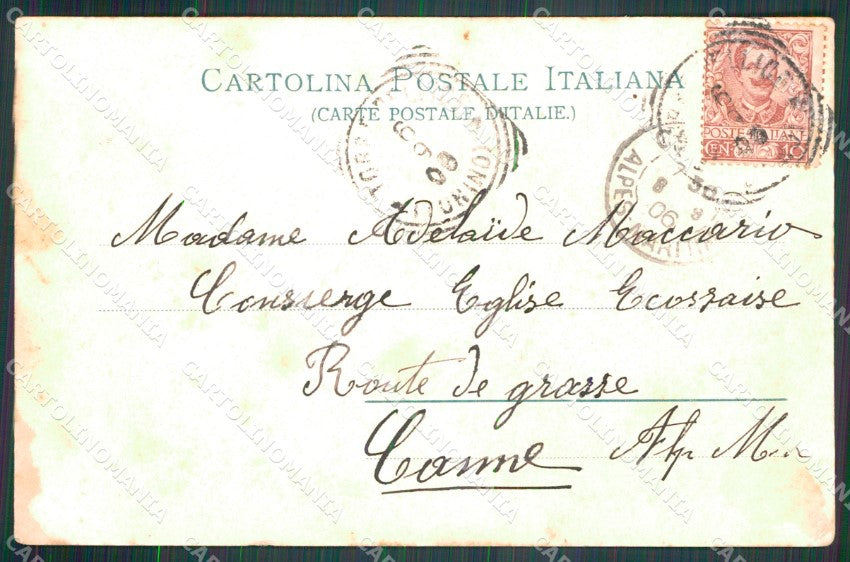 CARTOLINA POSTALE ITALIANA
(CARTE POSTALE D'ITALIE.)
POSTE ITALIANE
CEN 10
ALPES MARITIMES
06
Madame Adelaïde Maccario
Consierge Eglise Ecossaise
Route de grasse
Canne Alp Mes
CARTOLINOMANIA